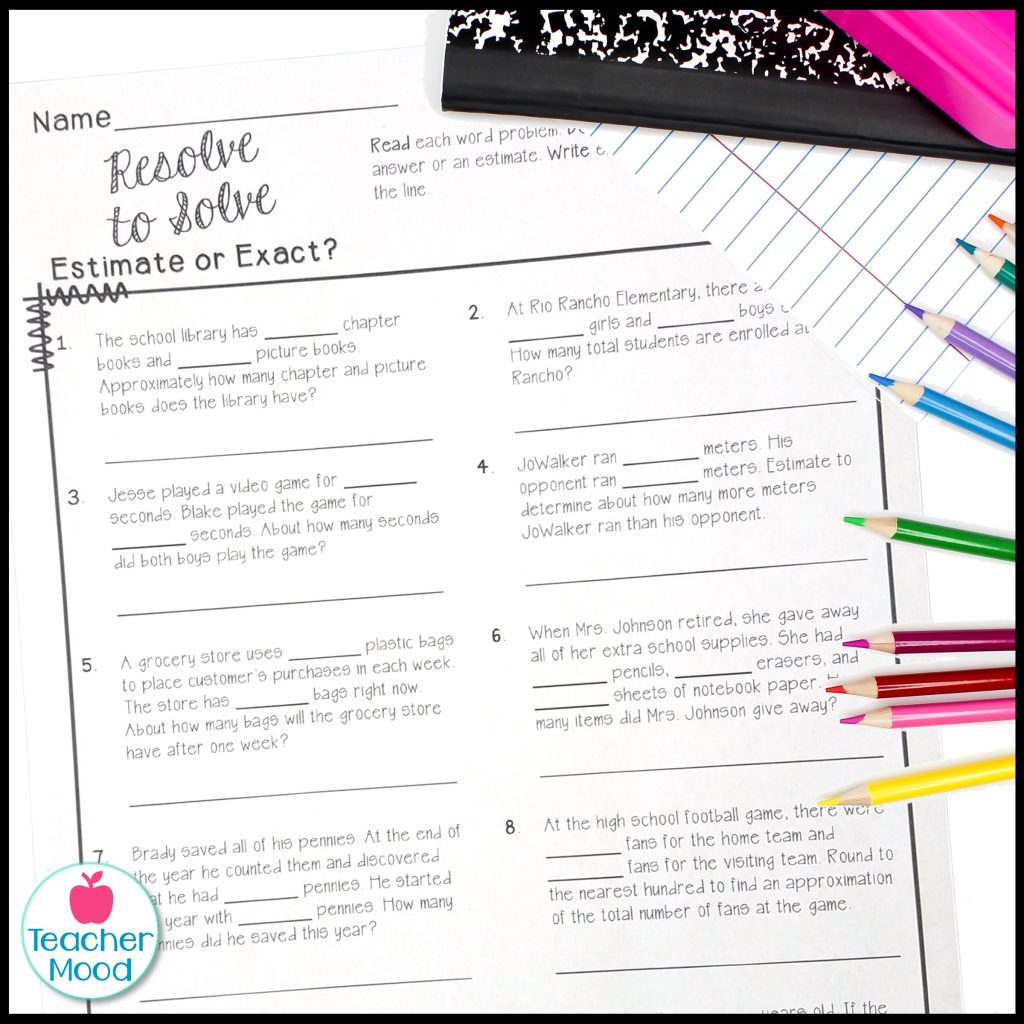 Name
Resolve
to Solve
Estimate or Exact?
Read each word problem.
answer or an estimate. Write
the line.
1. The school library has ________ chapter
books and ________ picture books.
Approximately how many chapter and picture
books does the library have?
2. At Rio Rancho Elementary, there
________ girls and ________ boys
How many total students are enrolled
Rancho?
3. Jesse played a video game for ________
seconds. Blake played the game for
________ seconds. About how many seconds
did both boys play the game?
4. JoWalker ran ________ meters. His
opponent ran ________ meters. Estimate to
determine about how many more meters
JoWalker ran than his opponent.
5. A grocery store uses ________ plastic bags
to place customer's purchases in each week.
The store has ________ bags right now.
About how many bags will the grocery store
have after one week?
6. When Mrs. Johnson retired, she gave away
all of her extra school supplies. She had
________ pencils, ________ erasers, and
________ sheets of notebook paper.
many items did Mrs. Johnson give away?
7. Brady saved all of his pennies. At the end of
the year he counted them and discovered
he had ________ pennies. He started
year with ________ pennies. How many
did he saved this year?
8. At the high school football game, there were
________ fans for the home team and
________ fans for the visiting team. Round to
the nearest hundred to find an approximation
of the total number of fans at the game.
years old. If the
Teacher
Mood